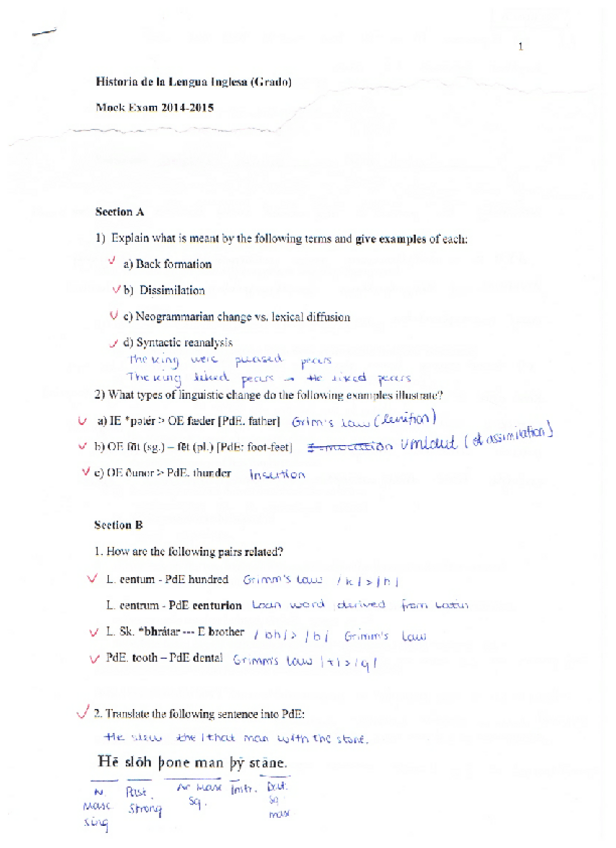 1
Historia de la Lengua Inglesa (Grado)
Mock Exam 2014-2015
Section A
1) Explain what is meant by the following terms and give examples of each:
a) Back formation
b) Dissimilation
c) Neogrammarian change vs. lexical diffusion
d) Syntactic reanalysis
The king pears
The king liked pears → He liked pears
2) What types of linguistic change do the following examples illustrate?
a) IE *patér > OE fæder [PdE. father] Grim's law (lenition)
b) OE fōt (sg.) – fēt (pl.) [PdE: foot-feet] Umlaut (of assimilation)
c) OE ðunor > PdE. thunder Insertion
Section B
1. How are the following pairs related?
L. centum - PdE hundred Grimm's law /k/ > /h/
L. centrum - PdE centurion Loan word derived from Latin
L. Sk. *bhrátar --- E brother /bh/ > /b/ Grimm's Law
PdE. tooth – PdE dental Grimm's law
2. Translate the following sentence into PdE:
He slew the/that man with the stone.
Hē slōh þone man þȳ stāne.
N. Past. Masc Instr. Dat.
Masc Strong Sg. sg
sing masc